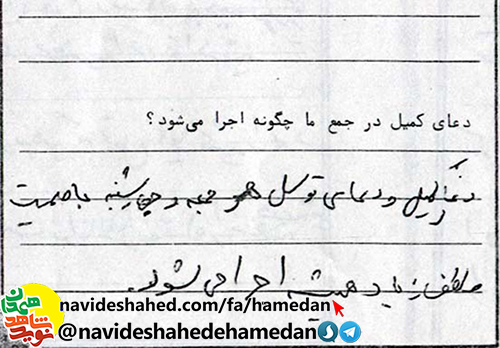 دعای کمیل در جمع ما چگونه اجرا می‌شود؟
دعای کمیل و دعای توسل هر جمعه و چهارشنبه با صمیمیت
زیاد همیشه اجرا می شود.
navideshahed.com/fa/hamedan
@navideshahedehamedan
نوید شاهد همدان